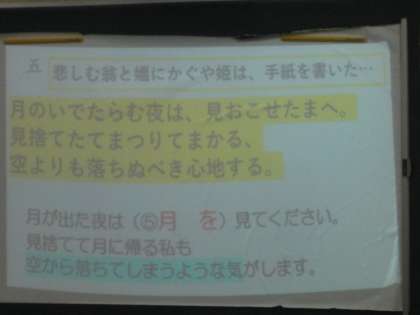 五 悲しむ翁と嫗にかぐや姫は、手紙を書いた…
月のいでたらむ夜は、見おこせたまへ。
見捨てたてまつりてまかる、
空よりも落ちぬべき心地する。
月が出た夜は（⑤月　を）見てください。
見捨てて月に帰る私も
空から落ちてしまうような気がします。